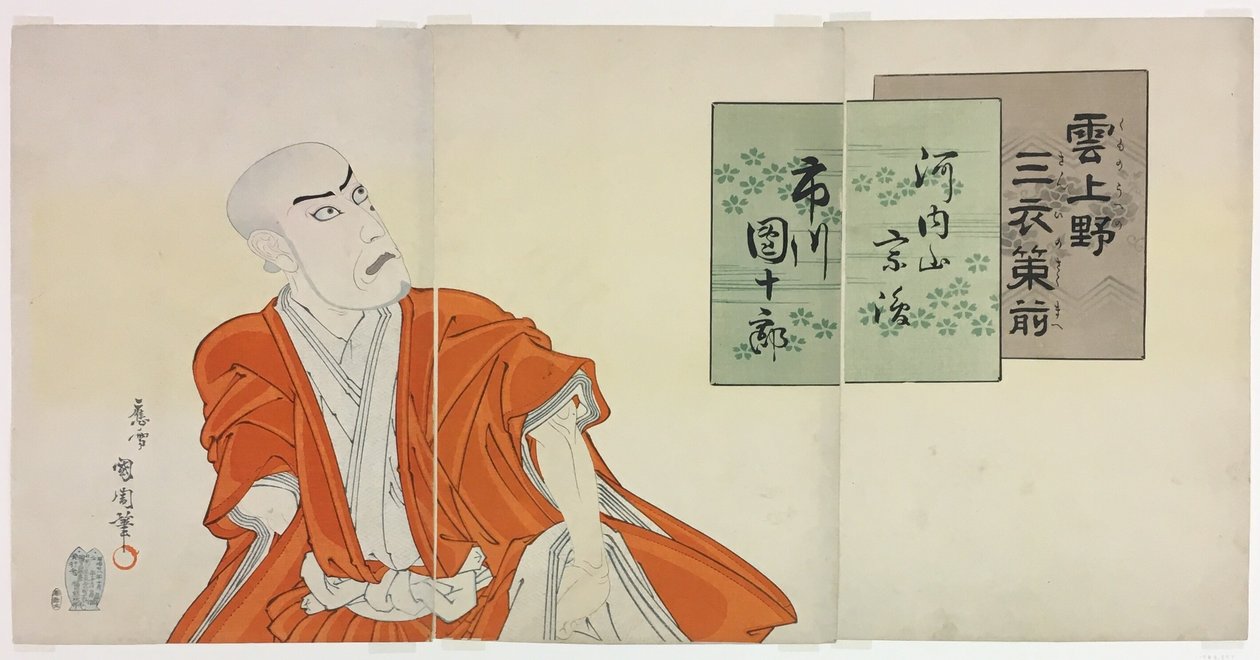 雲上野
くものうへの
三衣策前
さんいのさくまへ
河内山
宗俊
市川
團十郎
應需
國周筆